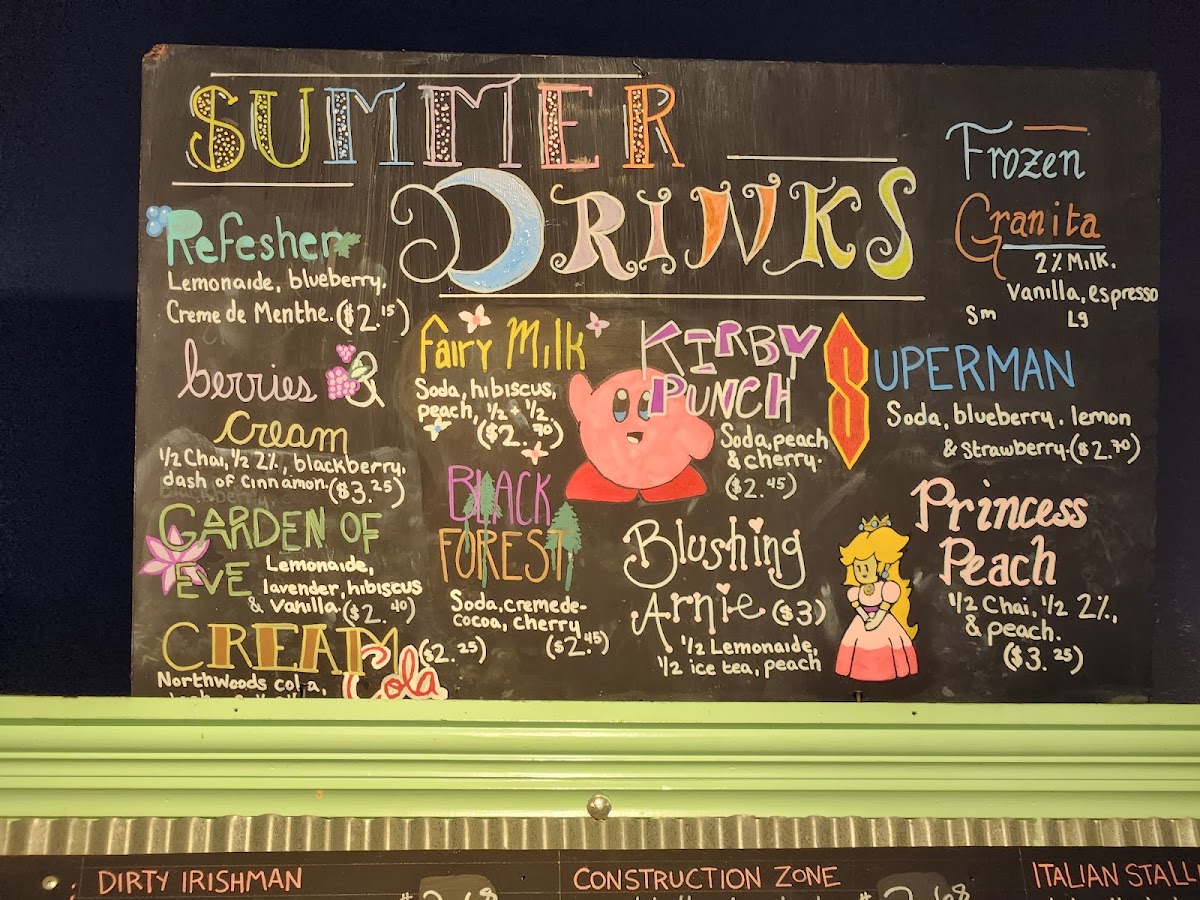 SUMMER
DRINKS
Refesher
Lemonaide, blueberry.
Creme de Menthe. ($2.15)
berries &
Cream
1/2 Chai, 1/2 2%, blackberry.
dash of cinnamon. ($3.25)
GARDEN OF
EVE
Lemonaide,
lavender, hibiscus
& vanilla. ($2.40)
CREAM
Cola
($2.25)
Northwoods cola,
Fairy Milk
Soda, hibiscus,
peach, 1/2 + 1/2
($2.70)
BLACK
FOREST
Soda, creme de-
cocoa, cherry
($2.45)
KIRBY
PUNCH
Soda, peach
& cherry.
($2.45)
Blushing
Arnie ($3)
1/2 Lemonaide,
1/2 ice tea, peach
Frozen
Granita
2% Milk.
Vanilla, espresso
Sm Lg
SUPERMAN
Soda, blueberry. lemon
& Strawberry. ($2.70)
Princess
Peach
1/2 Chai, 1/2 2%,
& peach.
($3.25)
DIRTY IRISHMAN
CONSTRUCTION ZONE
ITALIAN STALLI